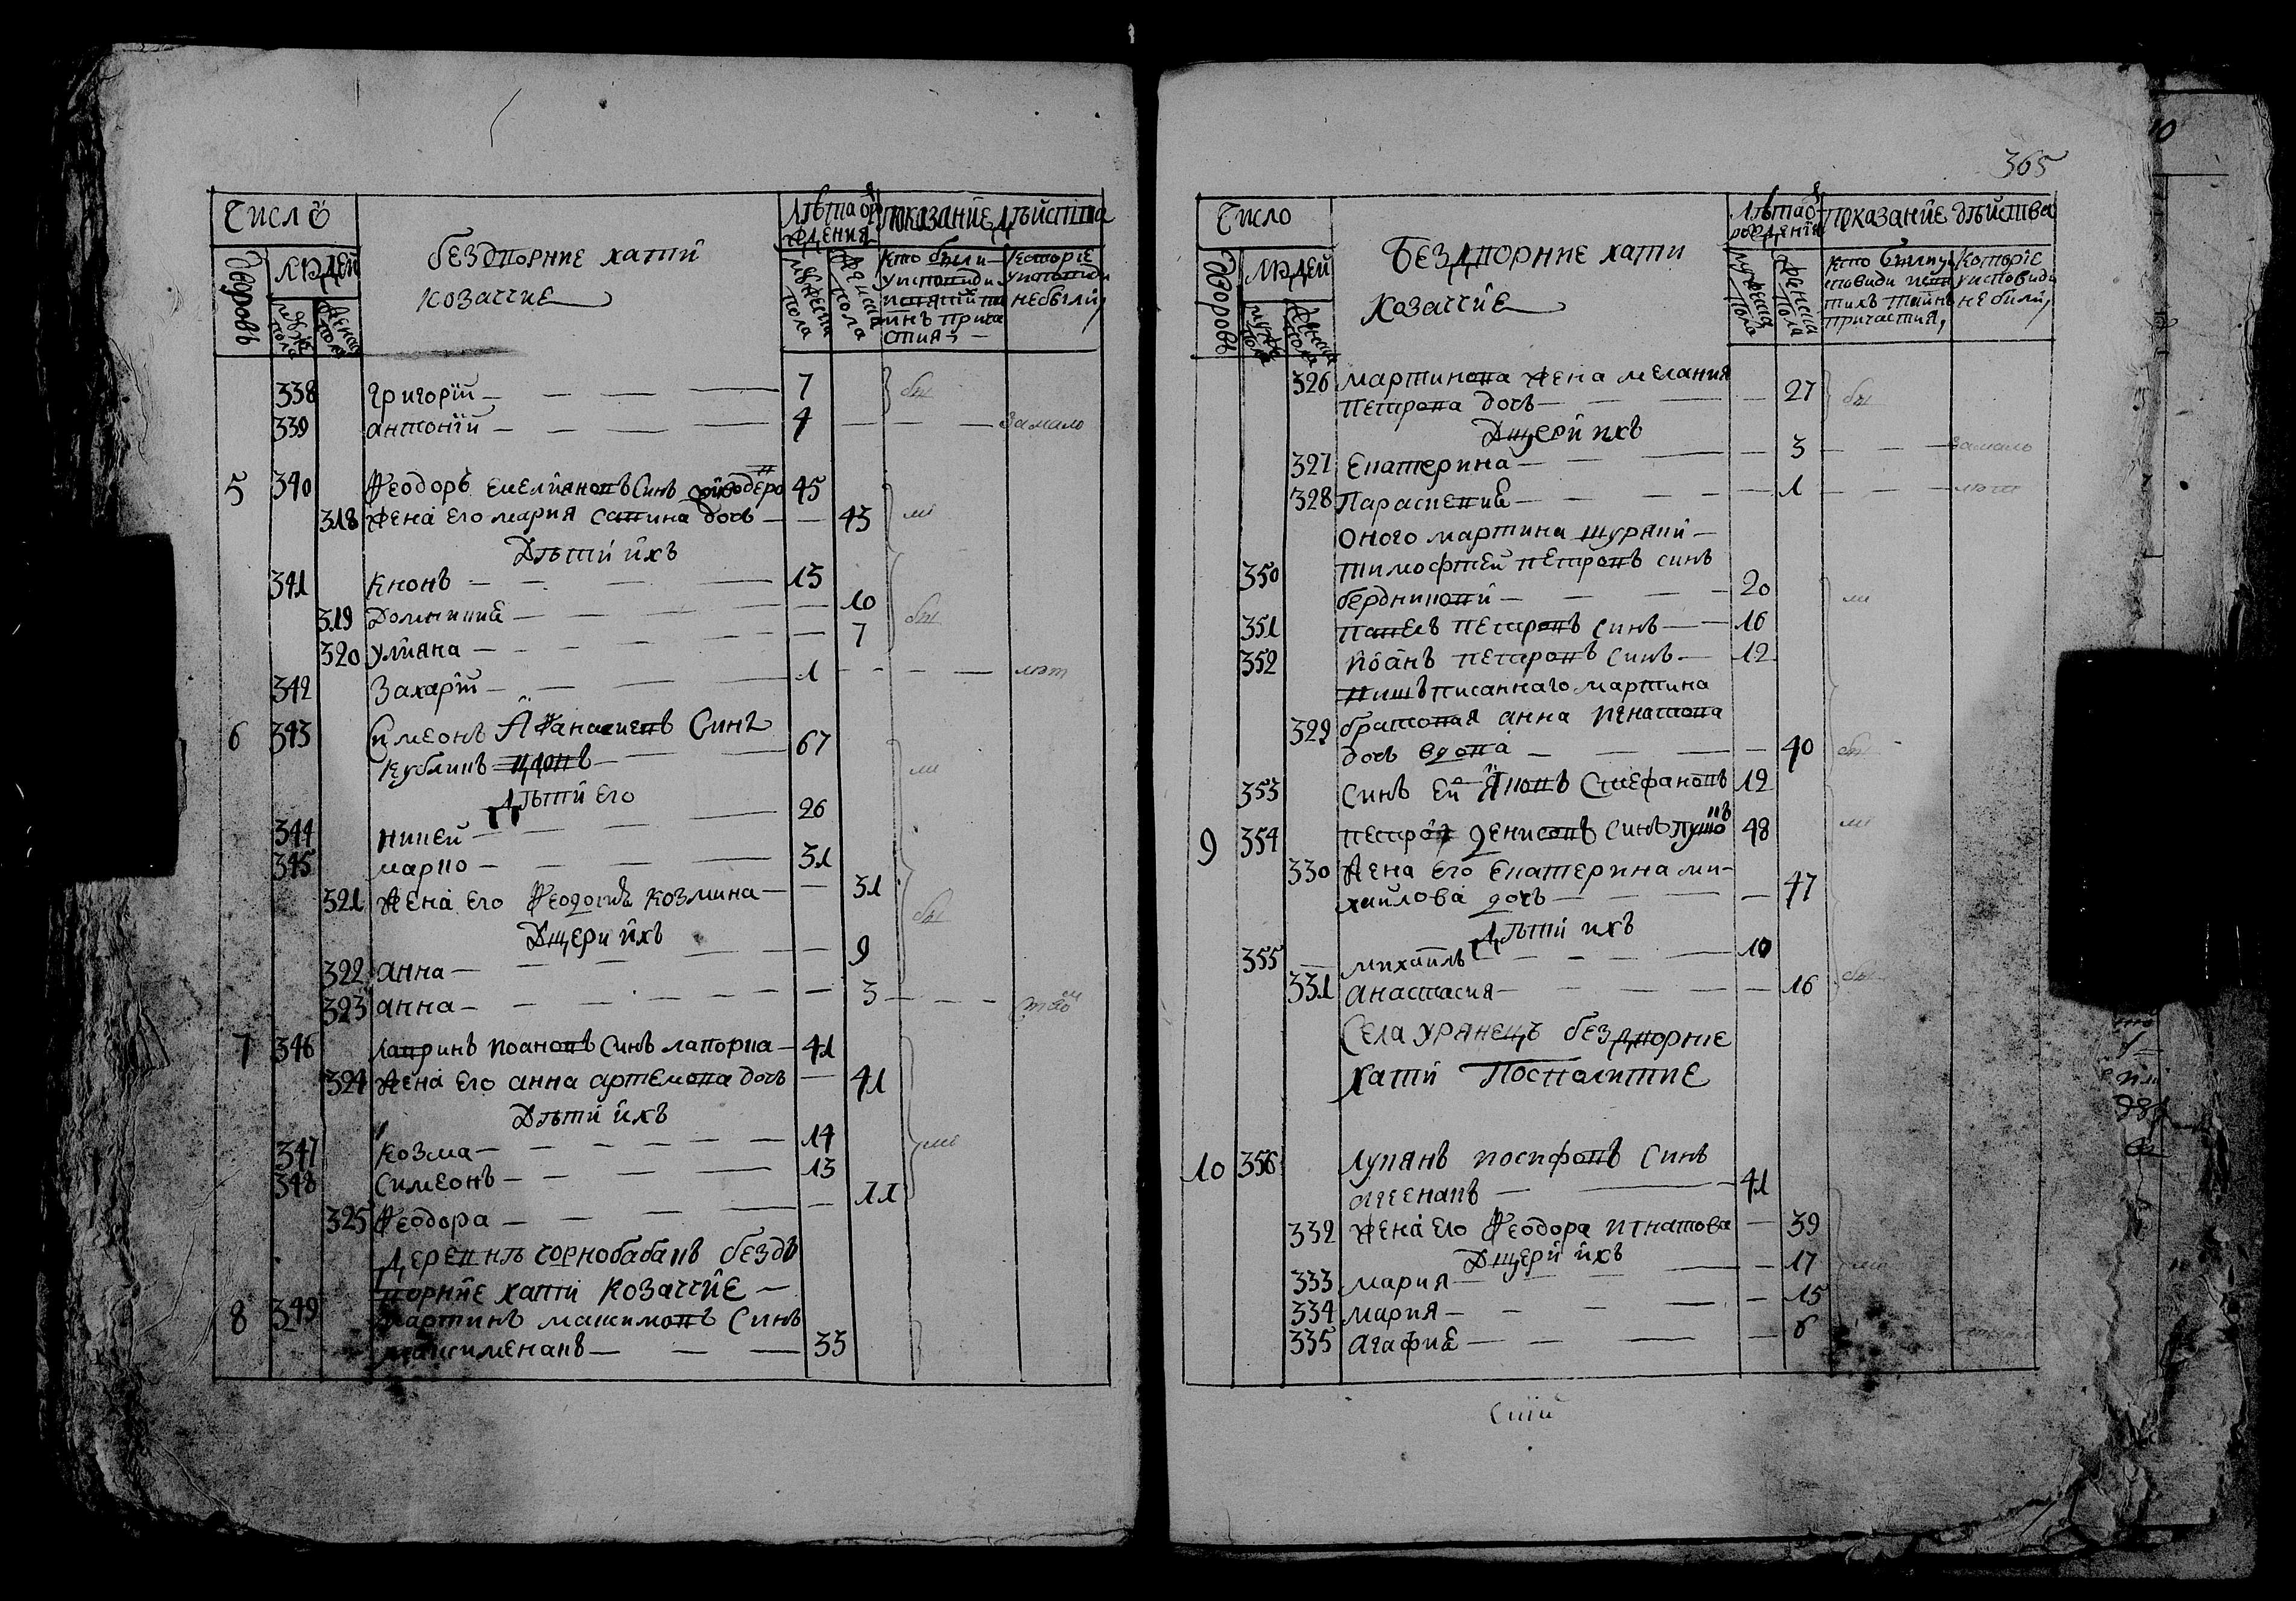 Число
Дворовъ
людей
мужеска пола
женска пола
бездворние хати
козачие
лѣта от рождения
мужеска пола
женска пола
показание дѣйства
кто били
у исповеди и
святих таинъ прича
стия
которие
у исповеди
не были
338 григорий — 7 бы
339 антоний — 4 — замало
5 340 Ѳеодоръ емелияновъ Синъ — 45
318 жена его мария савина дочь — 43 ли
Дѣти ихъ
341 кононъ — 13
319 Домникия — 10 бы
320 улияна — 7
342 Захарий — 1 — лѣт
6 343 Симеонъ Аѳанасиевъ Синъ
кублицъ вдовъ — 67 ли
Дѣти его
344 никей — 26
345 марко — 31
321 жена его Ѳеодосия козмина — 31 бы
Дщери ихъ
322 анна — 9
323 анна — 3 —
7 346 лавринъ иоановъ Синъ лаворка — 41
324 жена его анна артемова дочь — 41
Дѣти ихъ
347 козма — 14
348 Симеонъ — 13 ли
325 Ѳеодора — 11
деревнѣ чорнобабакъ бездъ
ворние хати козачие —
8 349 Мартинъ максимовъ Синъ
максименакъ — 33
365
Число
Дворовъ
людей
мужеска пола
женска пола
Бездворние хати
козачие
лѣта от
рождения
мужеска пола
женска пола
показание дѣйства
кто били у
споведи и свя
тихъ таинъ
причастия,
которие
у исповеди
не били,
326 мартинова жена мелания
петрова дочь — 27 бы
Дщери ихъ
327 екатерина — 3 — замало
328 Параскевия — 1 — лѣт
оного мартина шуряки —
350 тимофтей петровъ синъ
бердниковъ — 20 ли
351 павелъ петровъ синъ — 16
352 иоанъ петровъ синъ — 12
вишъписаннаго мартина
329 братовая анна игнатова
дочь вдова — 40 бы
353 Синъ ей яковъ Стефановъ 12
9 354 петро денисовъ синъ 48 ли
330 жена его екатерина ми-
хаилова дочь — 47
Дѣти ихъ
355 михаилъ — 10
331 анастасия — 16 бы
Села урянецъ бездворние
хати Посполитие
10 356 лукянъ иосифовъ Синъ
— 41
332 жена его Ѳеодора игнатова — 39
Дщери ихъ
333 мария — 17 ли
334 мария — 15
335 агафия — 6